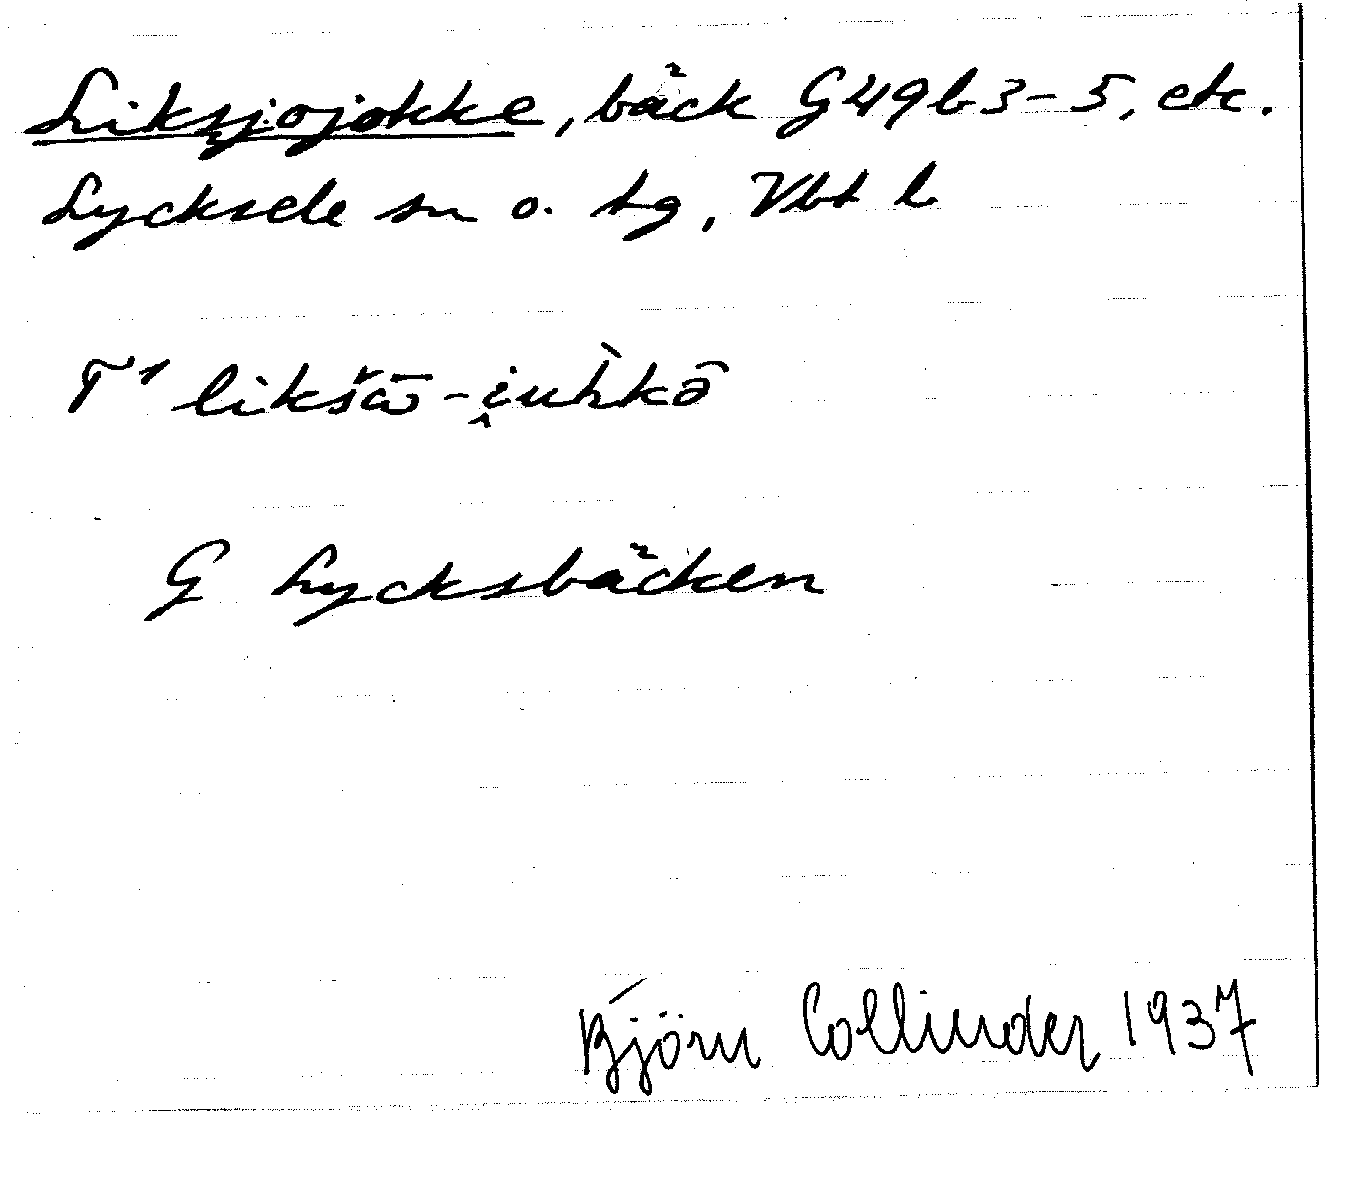 Liksjojokke, bäck G49b3-5, etc.
Lycksele sn o. tg, Vbt l
T¹ likšā-i̭uh̀kə̄
G Lycksbäcken
Björn Collinder 1937